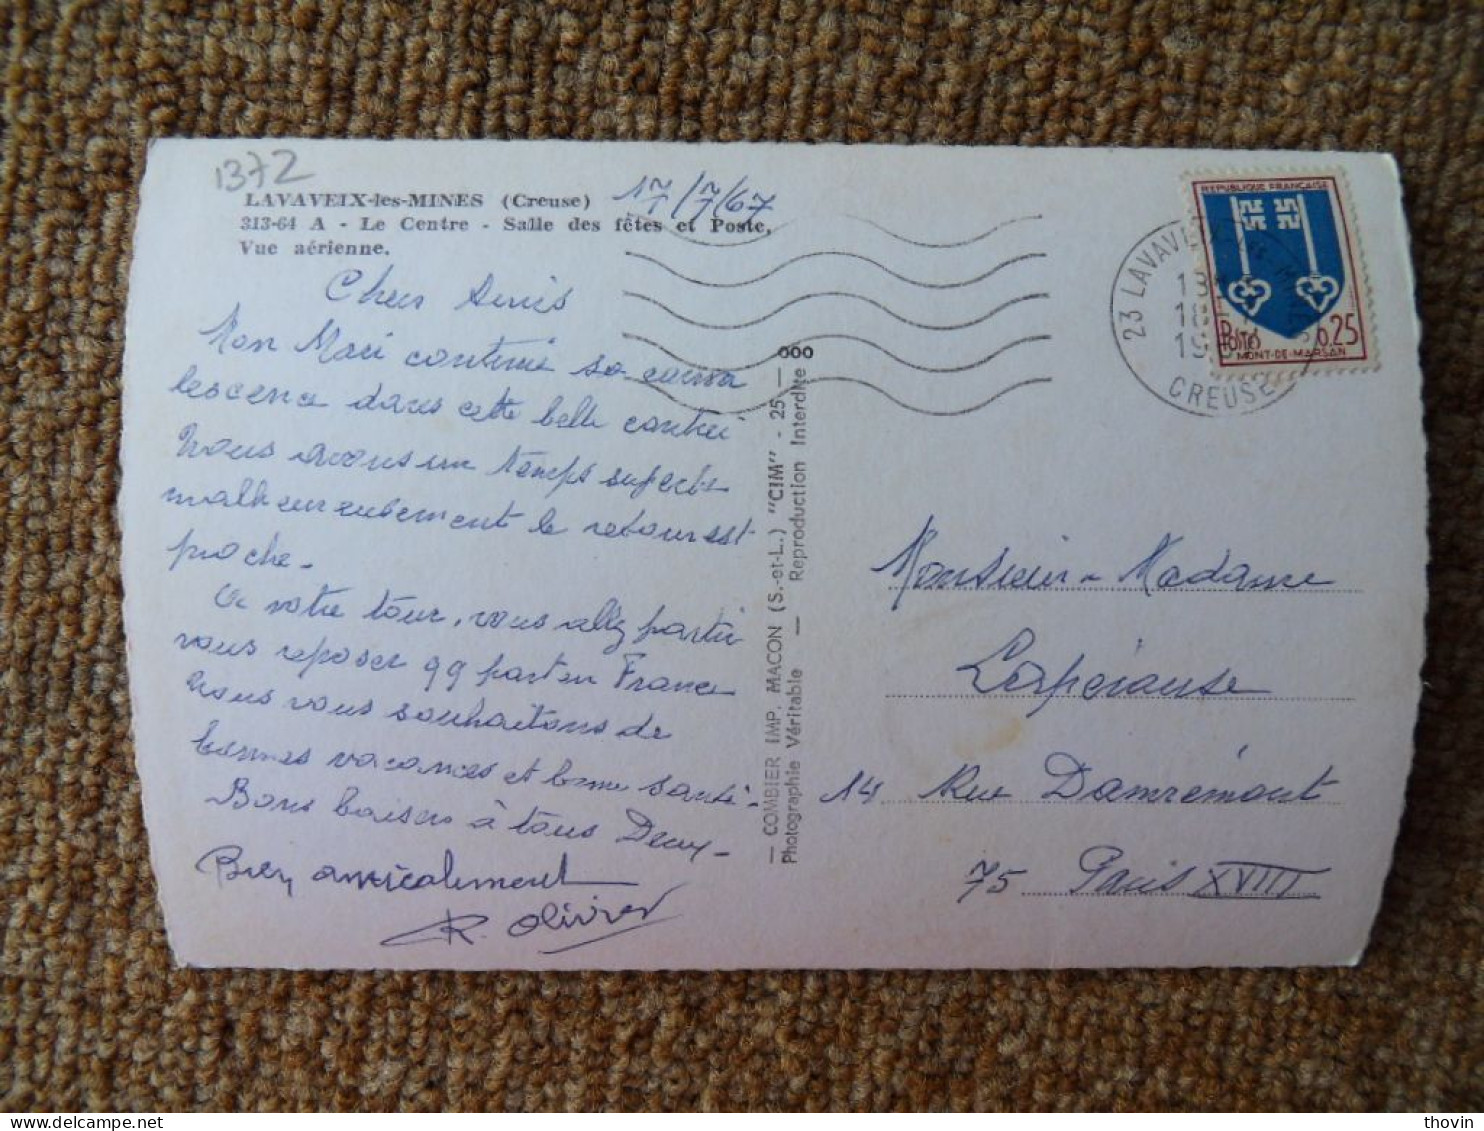 1372
LAVAVEIX-les-MINES (Creuse) 17/7/67
313-64 A - Le Centre - Salle des fêtes et Poste,
Vue aérienne.
Chers Amis
Mon Mari continue sa conva
lescence dans cette belle contrée
Nous avons un temps superbe
malheureusement le retour est
proche.
A votre tour, vous allez partir
vous reposer qq part en France
Nous vous souhaitons de
bonnes vacances et bonne santé.
Bons baisers à tous Deux.
Bien amicalement
R. Olivier
— COMBIER IMP. MACON (S.-et-L.) "CIM" - 25 — 000
Photographie Véritable — Reproduction Interdite
REPUBLIQUE FRANÇAISE
Postes 0,25
MONT-DE-MARSAN
23 LAVAVEIX-LES-M
CREUSE
Monsieur - Madame
Lapérause
14 Rue Damrémont
75 Paris XVIII
thovin